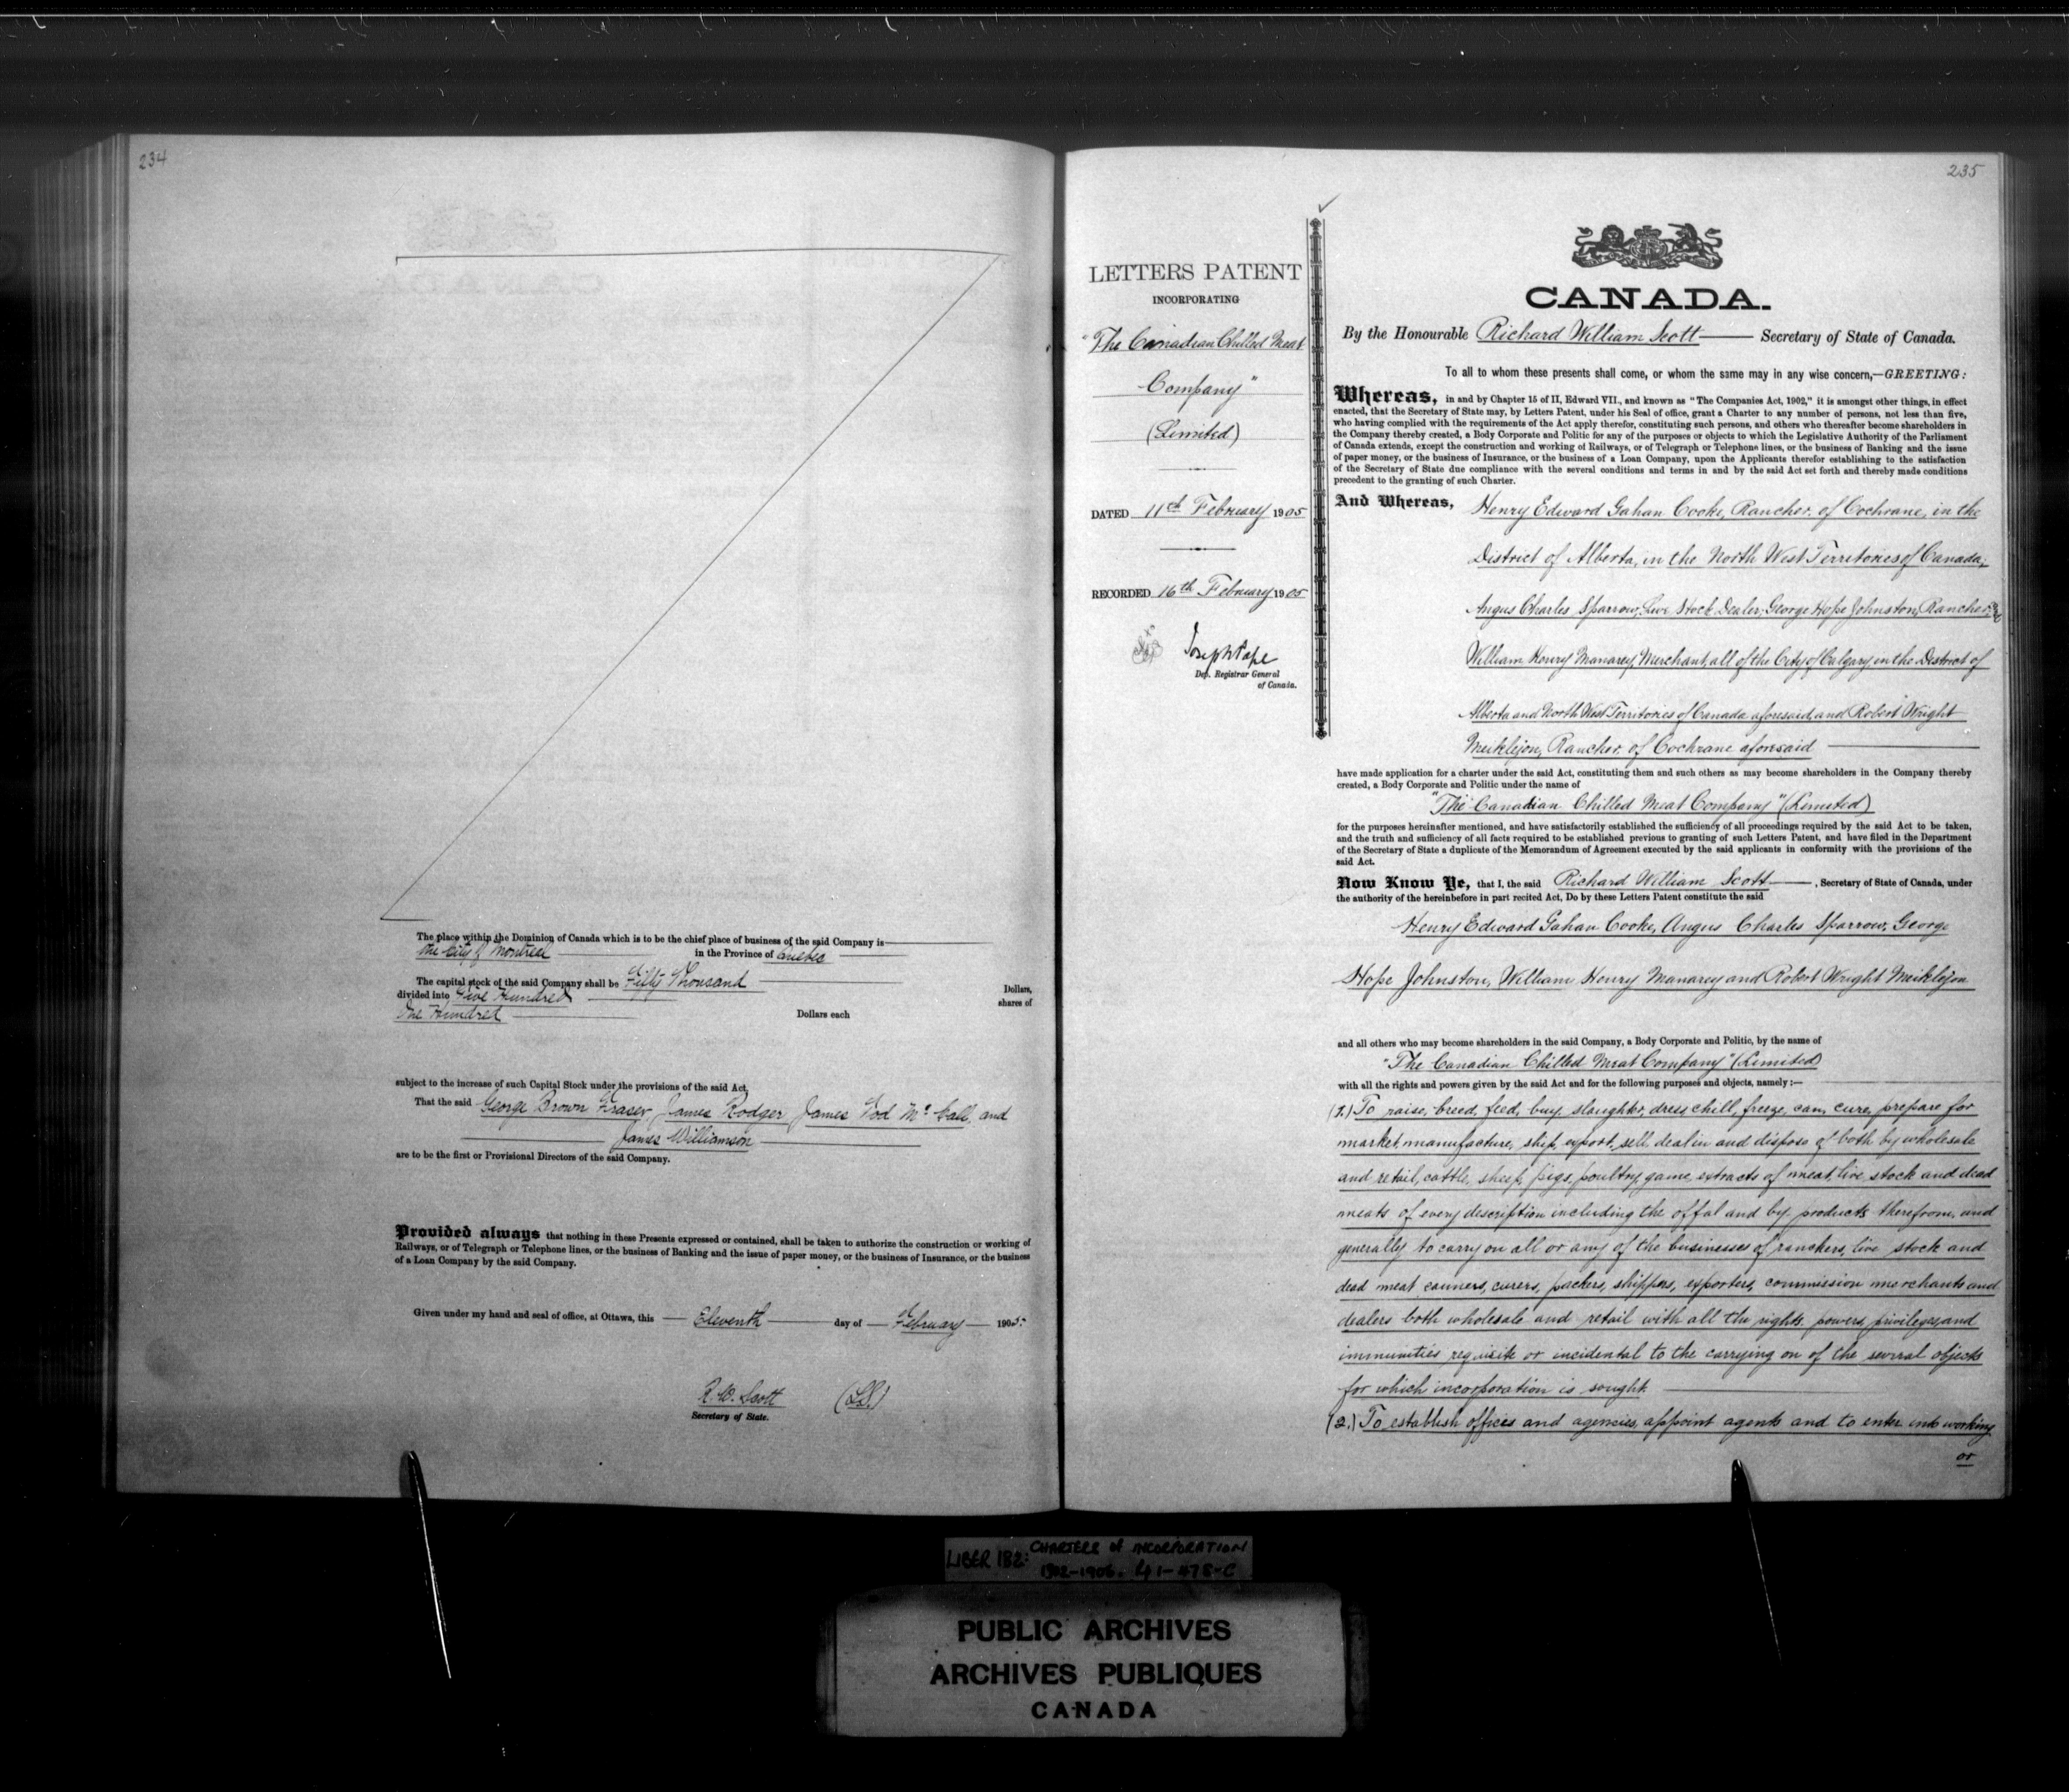 234
The place within the Dominion of Canada which is to be the chief place of business of the said Company is
the City of Montreal in the Province of Quebec
The capital stock of the said Company shall be Fifty Thousand
Dollars,
divided into Five Hundred
shares of
One Hundred Dollars each
subject to the increase of such Capital Stock under the provisions of the said Act,
That the said George Brown Fraser, James Rodger James Tod McCall, and
James Williamson
are to be the first or Provisional Directors of the said Company.
Provided always that nothing in these Presents expressed or contained, shall be taken to authorize the construction or working of
Railways, or of Telegraph or Telephone lines, or the business of Banking and the issue of paper money, or the business of Insurance, or the business
of a Loan Company by the said Company.
Given under my hand and seal of office, at Ottawa, this Eleventh day of February 1905.
R.W. Scott (LS.)
Secretary of State.
235
LETTERS PATENT
INCORPORATING
"The Canadian Chilled Meat
Company"
(Limited)
DATED 11th February 1905
RECORDED 16th February 1905
Joseph Pope
Dep. Registrar General
of Canada.
CANADA.
By the Honourable Richard William Scott Secretary of State of Canada.
To all to whom these presents shall come, or whom the same may in any wise concern,—GREETING:
Whereas, in and by Chapter 15 of II, Edward VII., and known as "The Companies Act, 1902," it is amongst other things, in effect
enacted, that the Secretary of State may, by Letters Patent, under his Seal of office, grant a Charter to any number of persons, not less than five,
who having complied with the requirements of the Act apply therefor, constituting such persons, and others who thereafter become shareholders in
the Company thereby created, a Body Corporate and Politic for any of the purposes or objects to which the Legislative Authority of the Parliament
of Canada extends, except the construction and working of Railways, or of Telegraph or Telephone lines, or the business of Banking and the issue
of paper money, or the business of Insurance, or the business of a Loan Company, upon the Applicants therefor establishing to the satisfaction
of the Secretary of State due compliance with the several conditions and terms in and by the said Act set forth and thereby made conditions
precedent to the granting of such Charter.
And Whereas, Henry Edward Gahan Cooke, Rancher, of Cochrane, in the
District of Alberta, in the North West Territories of Canada,
Angus Charles Sparrow, Live Stock Dealer, George Hope Johnston, Rancher, and
William Henry Manarey, Merchant, all of the City of Calgary in the District of
Alberta and North West Territories of Canada aforesaid, and Robert Wright
Meiklejon, Rancher, of Cochrane aforesaid
have made application for a charter under the said Act, constituting them and such others as may become shareholders in the Company thereby
created, a Body Corporate and Politic under the name of
"The Canadian Chilled Meat Company" (Limited)
for the purposes hereinafter mentioned, and have satisfactorily established the sufficiency of all proceedings required by the said Act to be taken,
and the truth and sufficiency of all facts required to be established previous to granting of such Letters Patent, and have filed in the Department
of the Secretary of State a duplicate of the Memorandum of Agreement executed by the said applicants in conformity with the provisions of the
said Act.
Now Know Ye, that I, the said Richard William Scott, Secretary of State of Canada, under
the authority of the hereinbefore in part recited Act, Do by these Letters Patent constitute the said
Henry Edward Gahan Cooke, Angus Charles Sparrow, George
Hope Johnston, William Henry Manarey and Robert Wright Meiklejon
and all others who may become shareholders in the said Company, a Body Corporate and Politic, by the name of
"The Canadian Chilled Meat Company" (Limited)
with all the rights and powers given by the said Act and for the following purposes and objects, namely:—
(1.) To raise, breed, feed, buy, slaughter, dress, chill, freeze, can, cure, prepare for
market, manufacture, ship, export, sell, deal in and dispose of both by wholesale
and retail, cattle, sheep, pigs, poultry, game, extracts of meat, live stock and dead
meats of every description including the offal and by products therefrom, and
generally to carry on all or any of the businesses of ranchers, live stock and
dead meat canners, curers, packers, shippers, exporters, commission merchants and
dealers both wholesale and retail with all the rights, powers, privileges, and
immunities requisite or incidental to the carrying on of the several objects
for which incorporation is sought.
(2.) To establish offices and agencies, appoint agents and to enter into working
or
LIBER 182: CHARTERS of INCORPORATION
1902-1905. 41-478-C
PUBLIC ARCHIVES
ARCHIVES PUBLIQUES
CANADA